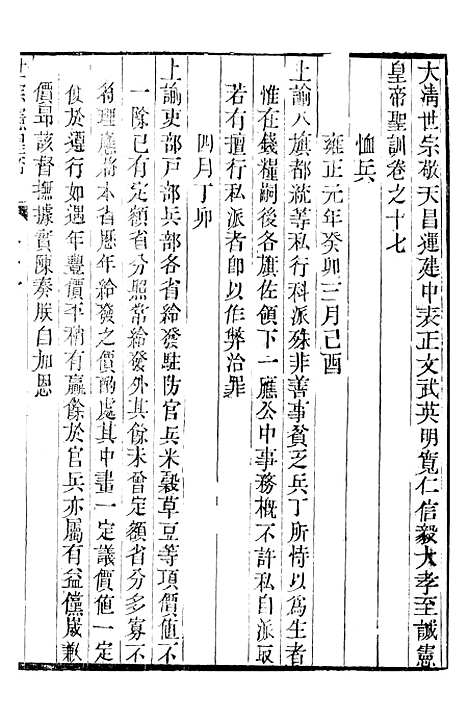 大清世宗敬天昌運建中表正文武英明寬仁信毅大孝至誠憲
皇帝聖訓卷之十七
恤兵
雍正元年癸卯三月己酉
上諭八旗都統等私行科派殊非善事貧乏兵丁所恃以為生者
惟在錢糧嗣後各旗佐領下一應公中事務概不許私自派取
若有擅行私派者即以作弊治罪
四月丁卯
上諭吏部戸部兵部各省給發駐防官兵米穀草豆等項價值不
一除已有定額省分照常給發外其餘未曾定額省分多寡不
將理應將本省歷年給發之價酌處其中畫一定議價值一定
便於遵行如遇年豐價平稍有贏餘於官兵亦屬有益儻歲歉
價昂該督撫據實陳奏朕自加恩